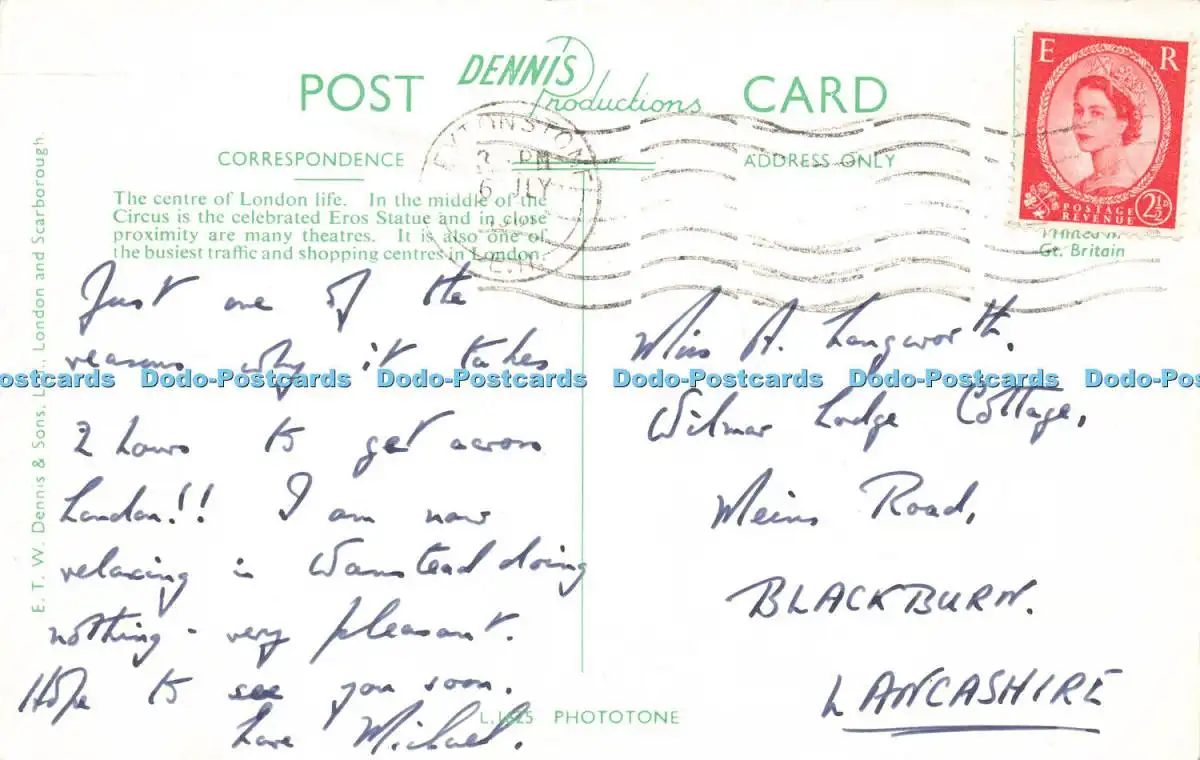 POST
DENNIS
Productions
CARD
CORRESPONDENCE
ADDRESS ONLY
The centre of London life. In the middle of the
Circus is the celebrated Eros Statue and in close
proximity are many theatres. It is also one of
the busiest traffic and shopping centres in London.
E R
POSTAGE
REVENUE
2½D
LEYTONSTONE
PM
6 JLY
Printed in
Gt. Britain
Just one of the
reasons why it takes
2 hours to get across
London!! I am now
relaxing in Wanstead doing
nothing - very pleasant.
Hope to see you soon.
Love Michael.
Miss A. Langworth.
Wilmar Lodge Cottage,
Meins Road,
BLACKBURN.
LANCASHIRE
E. T. W. Dennis & Sons, London and Scarborough
L. PHOTOTONE
ostcards Dodo-Postcards Dodo-Postcards Dodo-Postcards Dodo-Postcards Dodo-Post